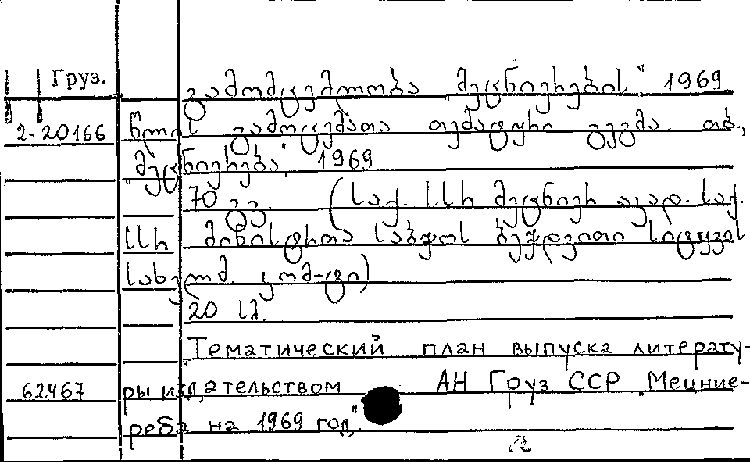 Груз.
გამომცემლობა „მეცნიერების" 1969
2-20166 წლის გამოცემათა თემატური გეგმა. თბ.,
„მეცნიერება", 1969
70 გვ. (საქ. სსრ მეცნიერ. აკად. საქ.
სსრ მინისტრთა საბჭოს ბეჭდვითი სიტყვის
სახელმ. კომ-ტი)
20 სმ.
Тематический план выпуска литерату-
62467 ры издательством АН Груз ССР „Мецние-
реба на 1969 год".